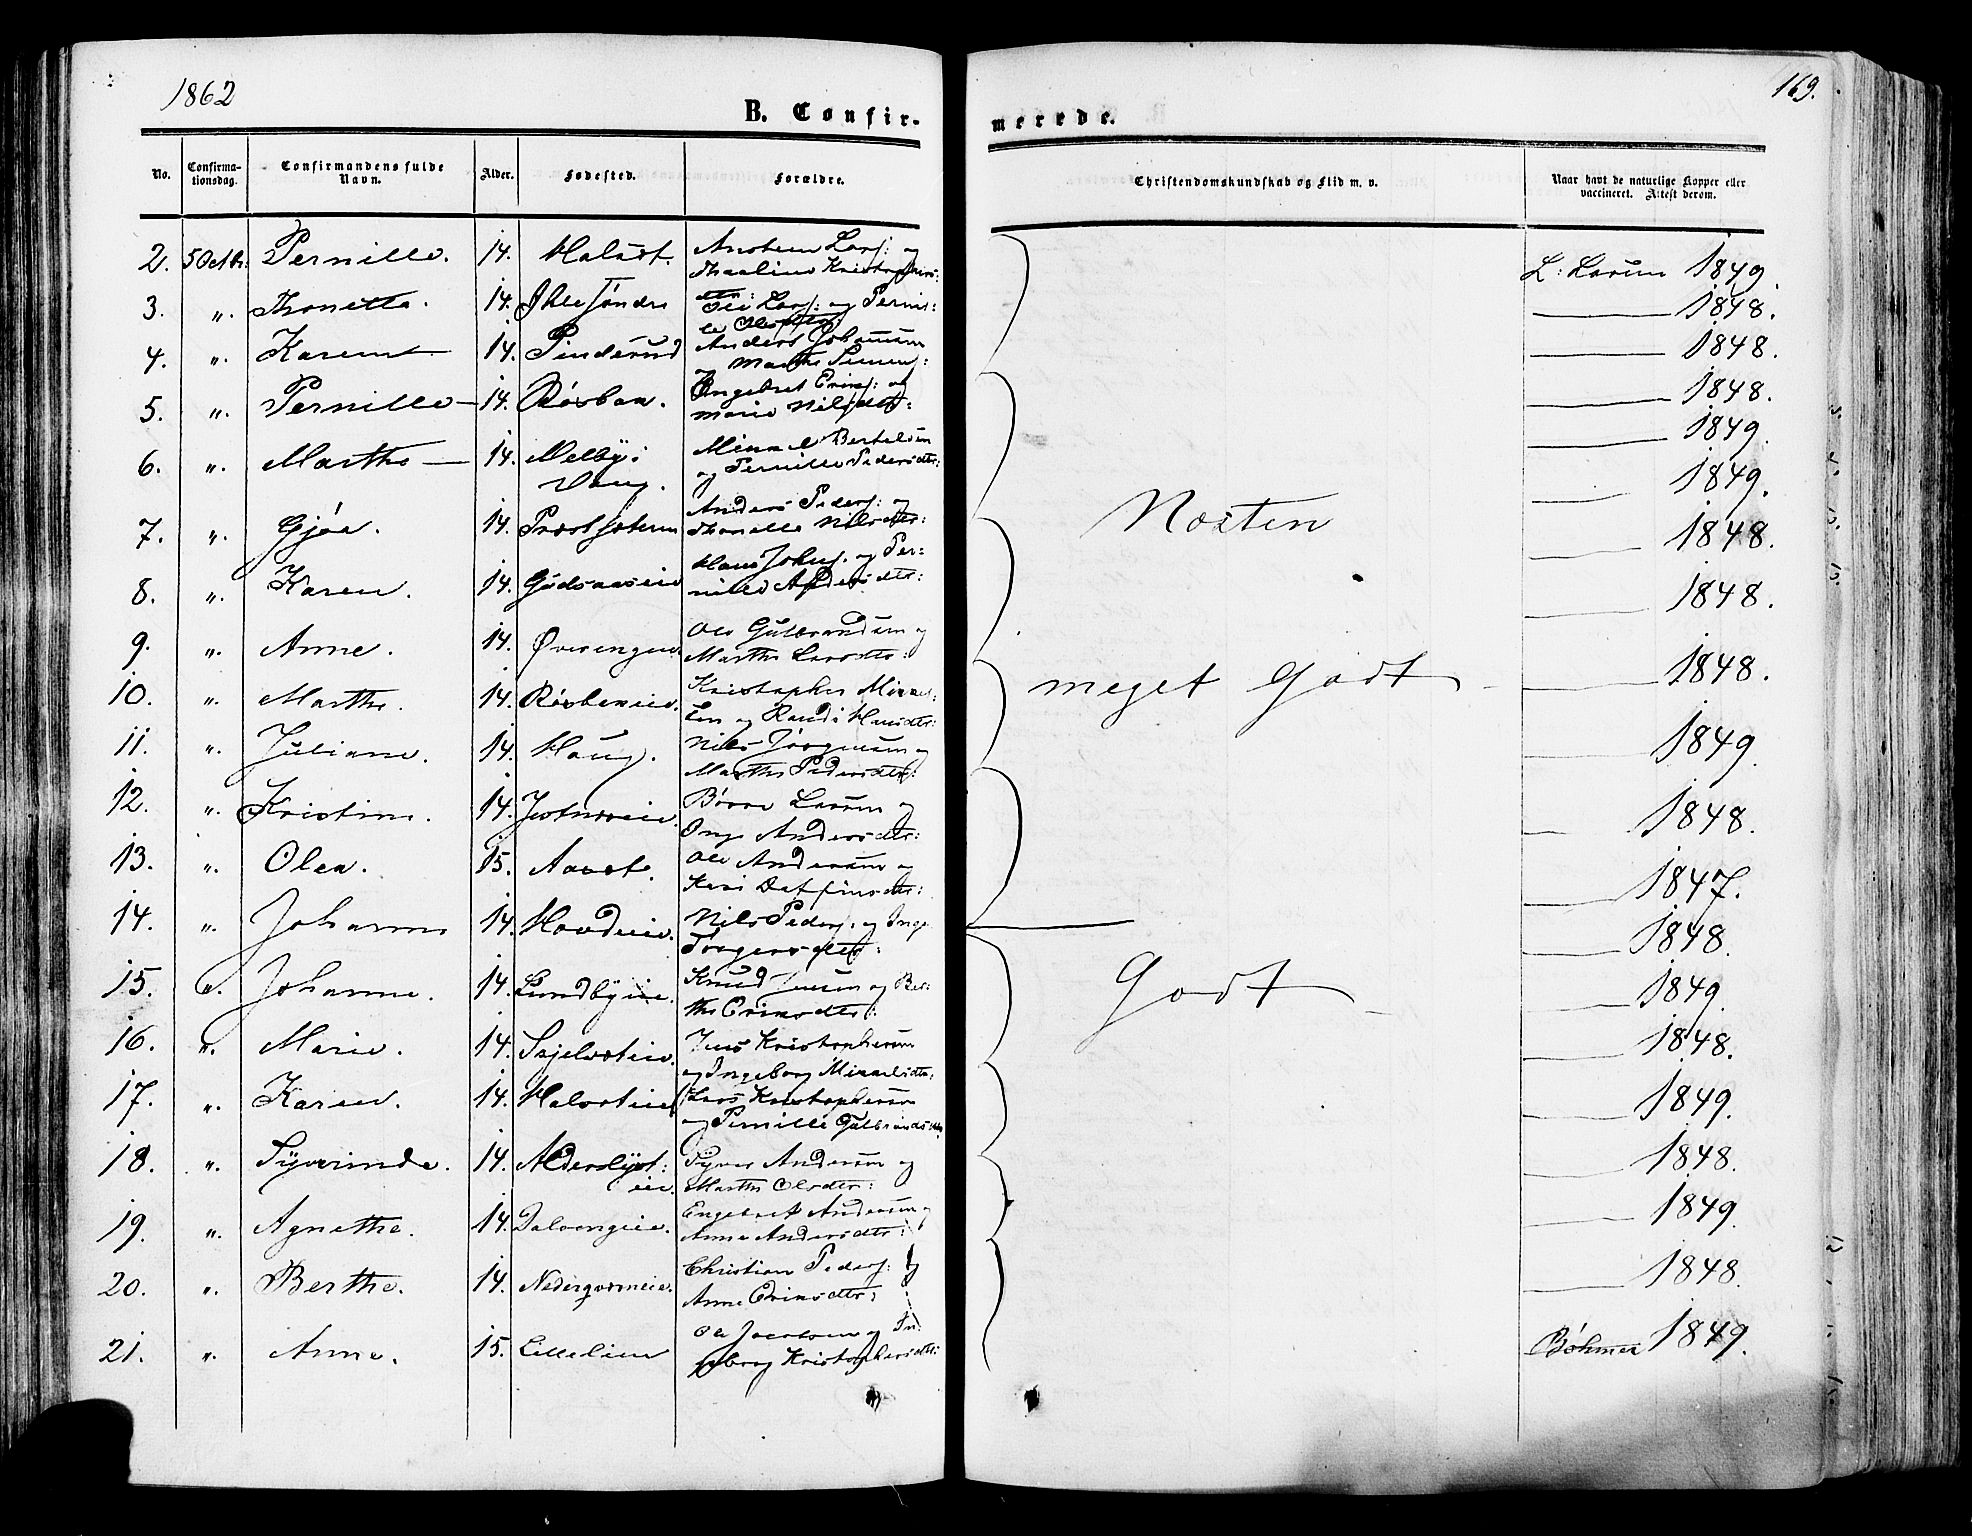 1862
169.
B. Confir-
merede.
No.
Confirma-
tionsdag.
Confirmandens fulde
Navn.
Alder.
Fødested.
Forældre.
Christendomskundskab og Flid m. v.
Naar havt de naturlige Kopper eller
vaccineret. Attest derom.
2. 5 Octbr: Pernille. 14. Halast. Anstein Lars: og
Kristophers
dtr: L: Larsen 1849
3. „ Thonette. 14. Tøndre Ole Lars: og Pernil:
le Olsdtr: 1848.
4. „ Karen 14. Pinderud Anders Johansen
og Marthe 1848.
5. „ Pernille 14. Røsban. Engebret og
Marie Nilsdtr: 1848.
6. „ Marthe 14. Melby i Mikkel Bertelsen
Vang. og Pernille Pedersdtr: 1849.
7. „ Gjøa. 14. Præstsæteren Anders Peders: og
Thonette Nilsdtr: 1849.
8. „ Karen. 14. Godsaaseie Hans Johns. og Per:
nille Andersdtr: 1848.
9. „ Anne. 14. Øverengen. Ole Gulbrandsen og
Marthe Larsdtr: 1848.
Næsten
meget Godt
10. „ Marthe. 14. Røsbaneie. Kristopher Mikkel:
sen og Randi Hansdtr: 1848.
11. „ Juliane. 14. Haug. Nils Jörgensen og
Marthe Pedersdtr: 1849
12. „ Kristine. 14. Børre Larsen og
Inge Andersdtr: 1848.
13. „ Olea. 15. Aavst. Ole Andersen og
Kari Daffinsdtr: 1847.
14. „ Johanne 14. Hovdeie. Nils Peders: og Inge
Torgersdtr: 1848.
15. „ Johanne. 14. Lundbyeie. Knud Jensen og Ber:
the Eriksdtr: 1849.
Godt
16. „ Marie. 14. Jens Kristophersen
og Ingeborg Mikkelsdtr: 1848.
17. „ Karen. 14. Halvsteie Lars Kristophersen
og Pernille Gulbrandsdtr. 1849.
18. „ Syverinde. 14. Alderslyst: Syver Andersen og
eie. Marthe Olsdtr: 1848.
19. „ Agnethe. 14. Dalvengeie. Engebret Andersen og
Anne Andersdtr: 1849.
20. „ Berthe. 14. Nedergaardeie. Christian Peders: og
Anne Eriksdtr: 1848.
21. „ Anne. 15. Lillelien Ole Jacobsen og In:
geborg Kristophersdtr: Bøhmer 1849.